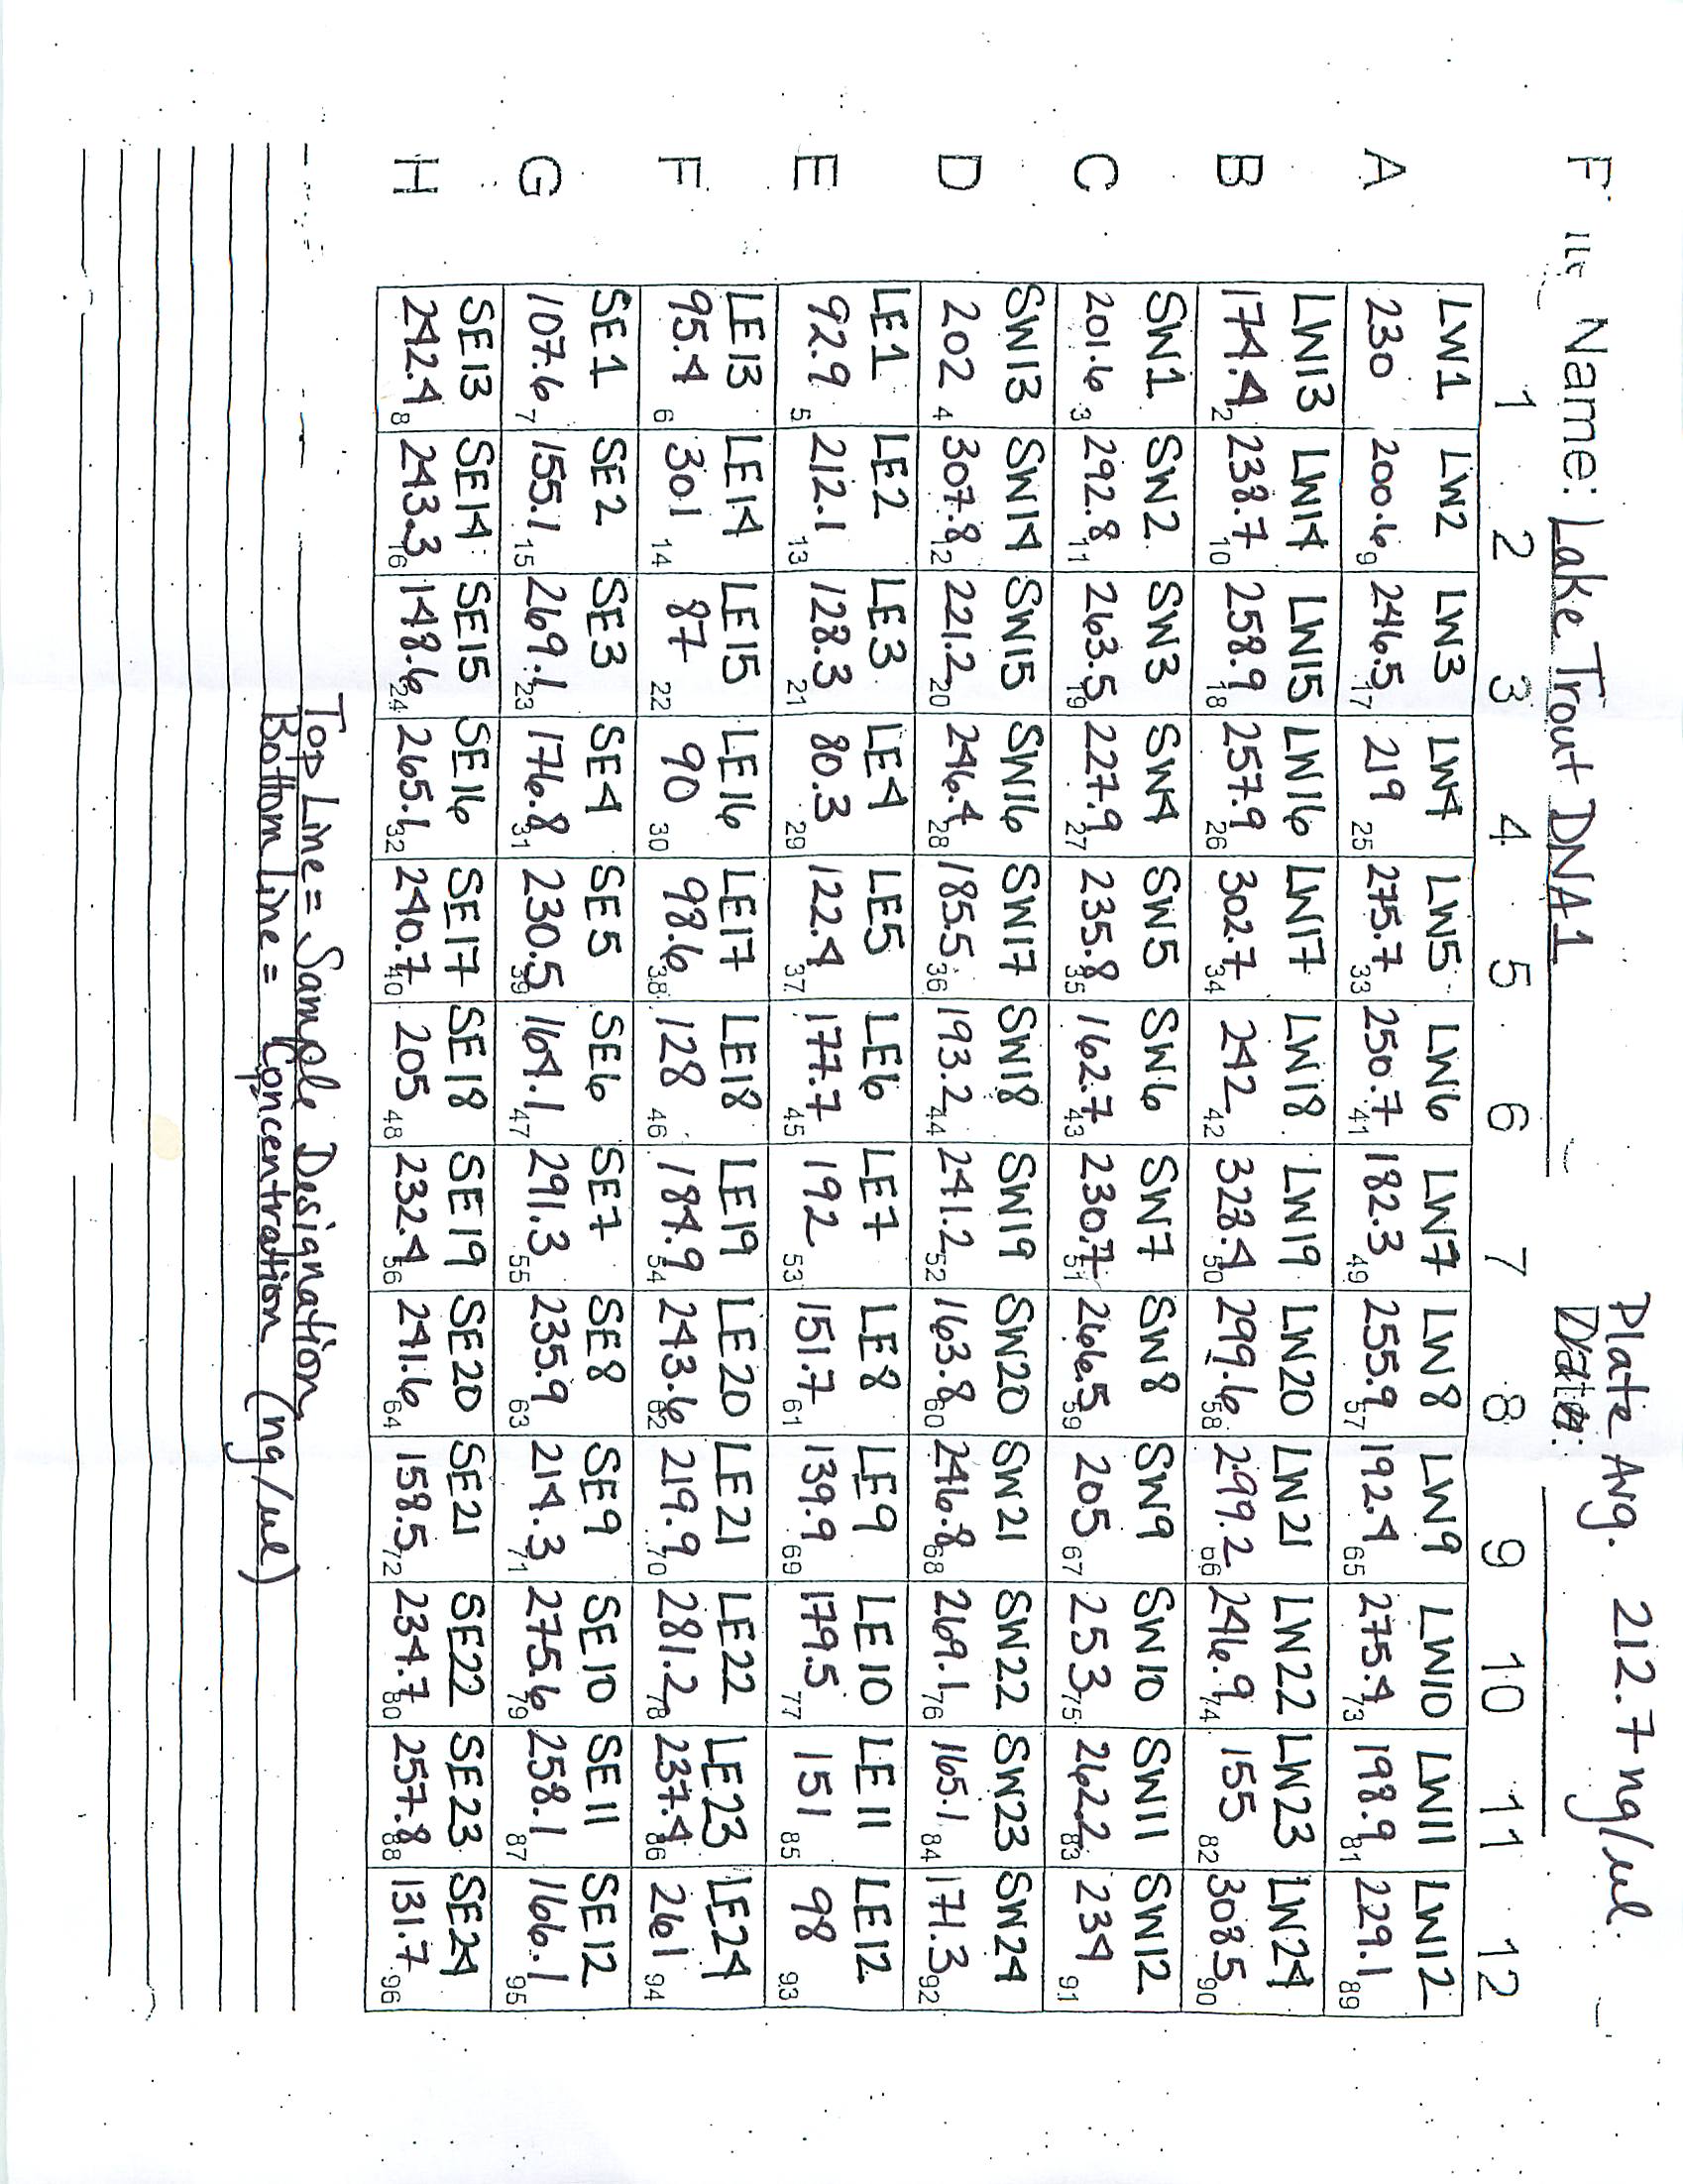 File Name: Lake Trout DNA 1 Plate Avg. 212.7 ng/ul
1 2 3 4 5 6 7 8 9 10 11 12
A LW1 LW2 LW3 LW4 LW5 LW6 LW7 LW8 LW9 LW10 LW11 LW12
230 200.6 9 246.5 17 219 25 275.7 33 250.7 41 182.3 49 255.9 57 192.4 65 275.4 73 198.9 81 229.1 89
B LW13 LW14 LW15 LW16 LW17 LW18 LW19 LW20 LW21 LW22 LW23 LW24
174.4 2 238.7 10 258.9 18 257.9 26 302.7 34 242 42 328.4 50 299.6 58 299.2 66 246.9 74 155 82 308.5 90
C SW1 SW2 SW3 SW4 SW5 SW6 SW7 SW8 SW9 SW10 SW11 SW12
201.6 3 292.8 11 263.5 19 227.9 27 235.8 35 162.7 43 230.7 51 266.5 59 205 67 253 75 262.2 83 234 91
D SW13 SW14 SW15 SW16 SW17 SW18 SW19 SW20 SW21 SW22 SW23 SW24
202 4 307.8 12 221.2 20 246.4 28 185.5 36 193.2 44 241.2 52 163.8 60 246.8 68 269.1 76 165.1 84 171.3 92
E LE1 LE2 LE3 LE4 LE5 LE6 LE7 LE8 LE9 LE10 LE11 LE12
92.9 5 212.1 13 128.3 21 80.3 29 122.4 37 177.7 45 192 53 151.7 61 139.9 69 179.5 77 151 85 98 93
F LE13 LE14 LE15 LE16 LE17 LE18 LE19 LE20 LE21 LE22 LE23 LE24
95.4 6 30.1 14 87 22 90 30 98.6 38 128 46 184.9 54 243.6 62 219.9 70 281.2 78 237.4 86 261 94
G SE1 SE2 SE3 SE4 SE5 SE6 SE7 SE8 SE9 SE10 SE11 SE12
107.6 7 155.1 15 269.1 23 176.8 31 230.5 39 164.1 47 291.3 55 235.9 63 214.3 71 275.6 79 258.1 87 166.1 95
H SE13 SE14 SE15 SE16 SE17 SE18 SE19 SE20 SE21 SE22 SE23 SE24
242.4 8 243.3 16 148.6 24 265.1 32 240.7 40 205 48 232.4 56 241.6 64 158.5 72 234.7 80 257.8 88 131.7 96
Top Line = Sample Designation
Bottom Line = Concentration (ng/ul)